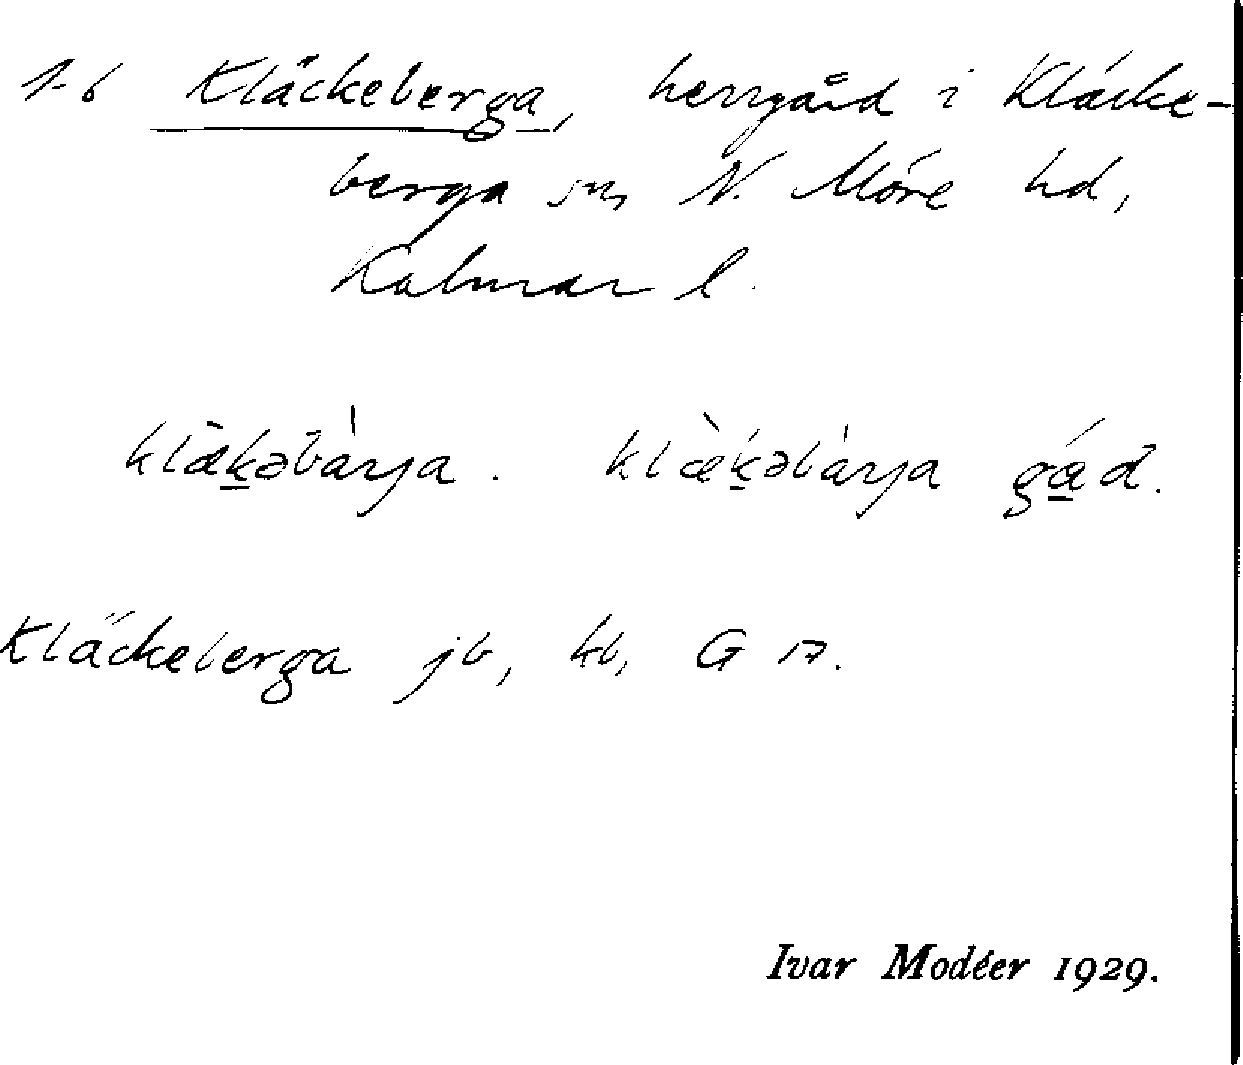 1-6 Kläckeberga, herrgård i Kläcke-
berga sn, N. Möre hd,
Kalmar l.
klæḵəbàrja. klæ̀ḵəbàrja gá̱d.
Kläckeberga jb, kb, G 17.
Ivar Modéer 1929.